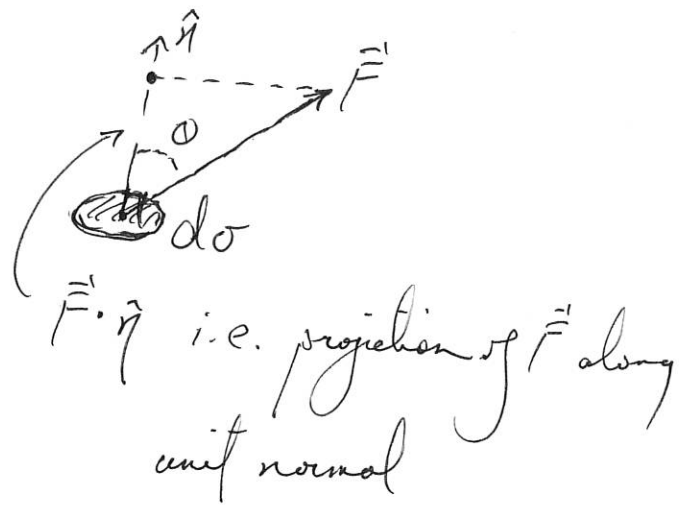 n̂
F⃗
θ
dσ
F⃗·n̂ i.e. projection of F⃗ along
unit normal